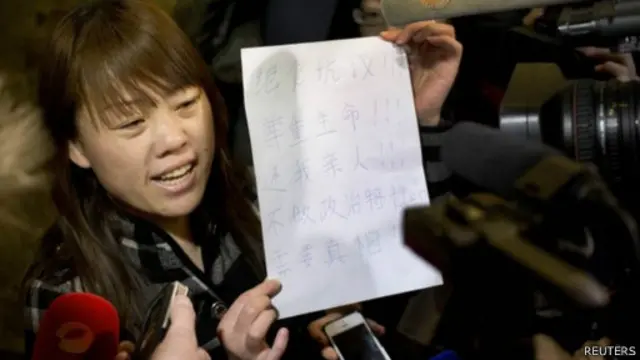 绝食抗议!!
尊重生命!!!
还我亲人!!!
不做政治牺牲
要真相!
REUTERS